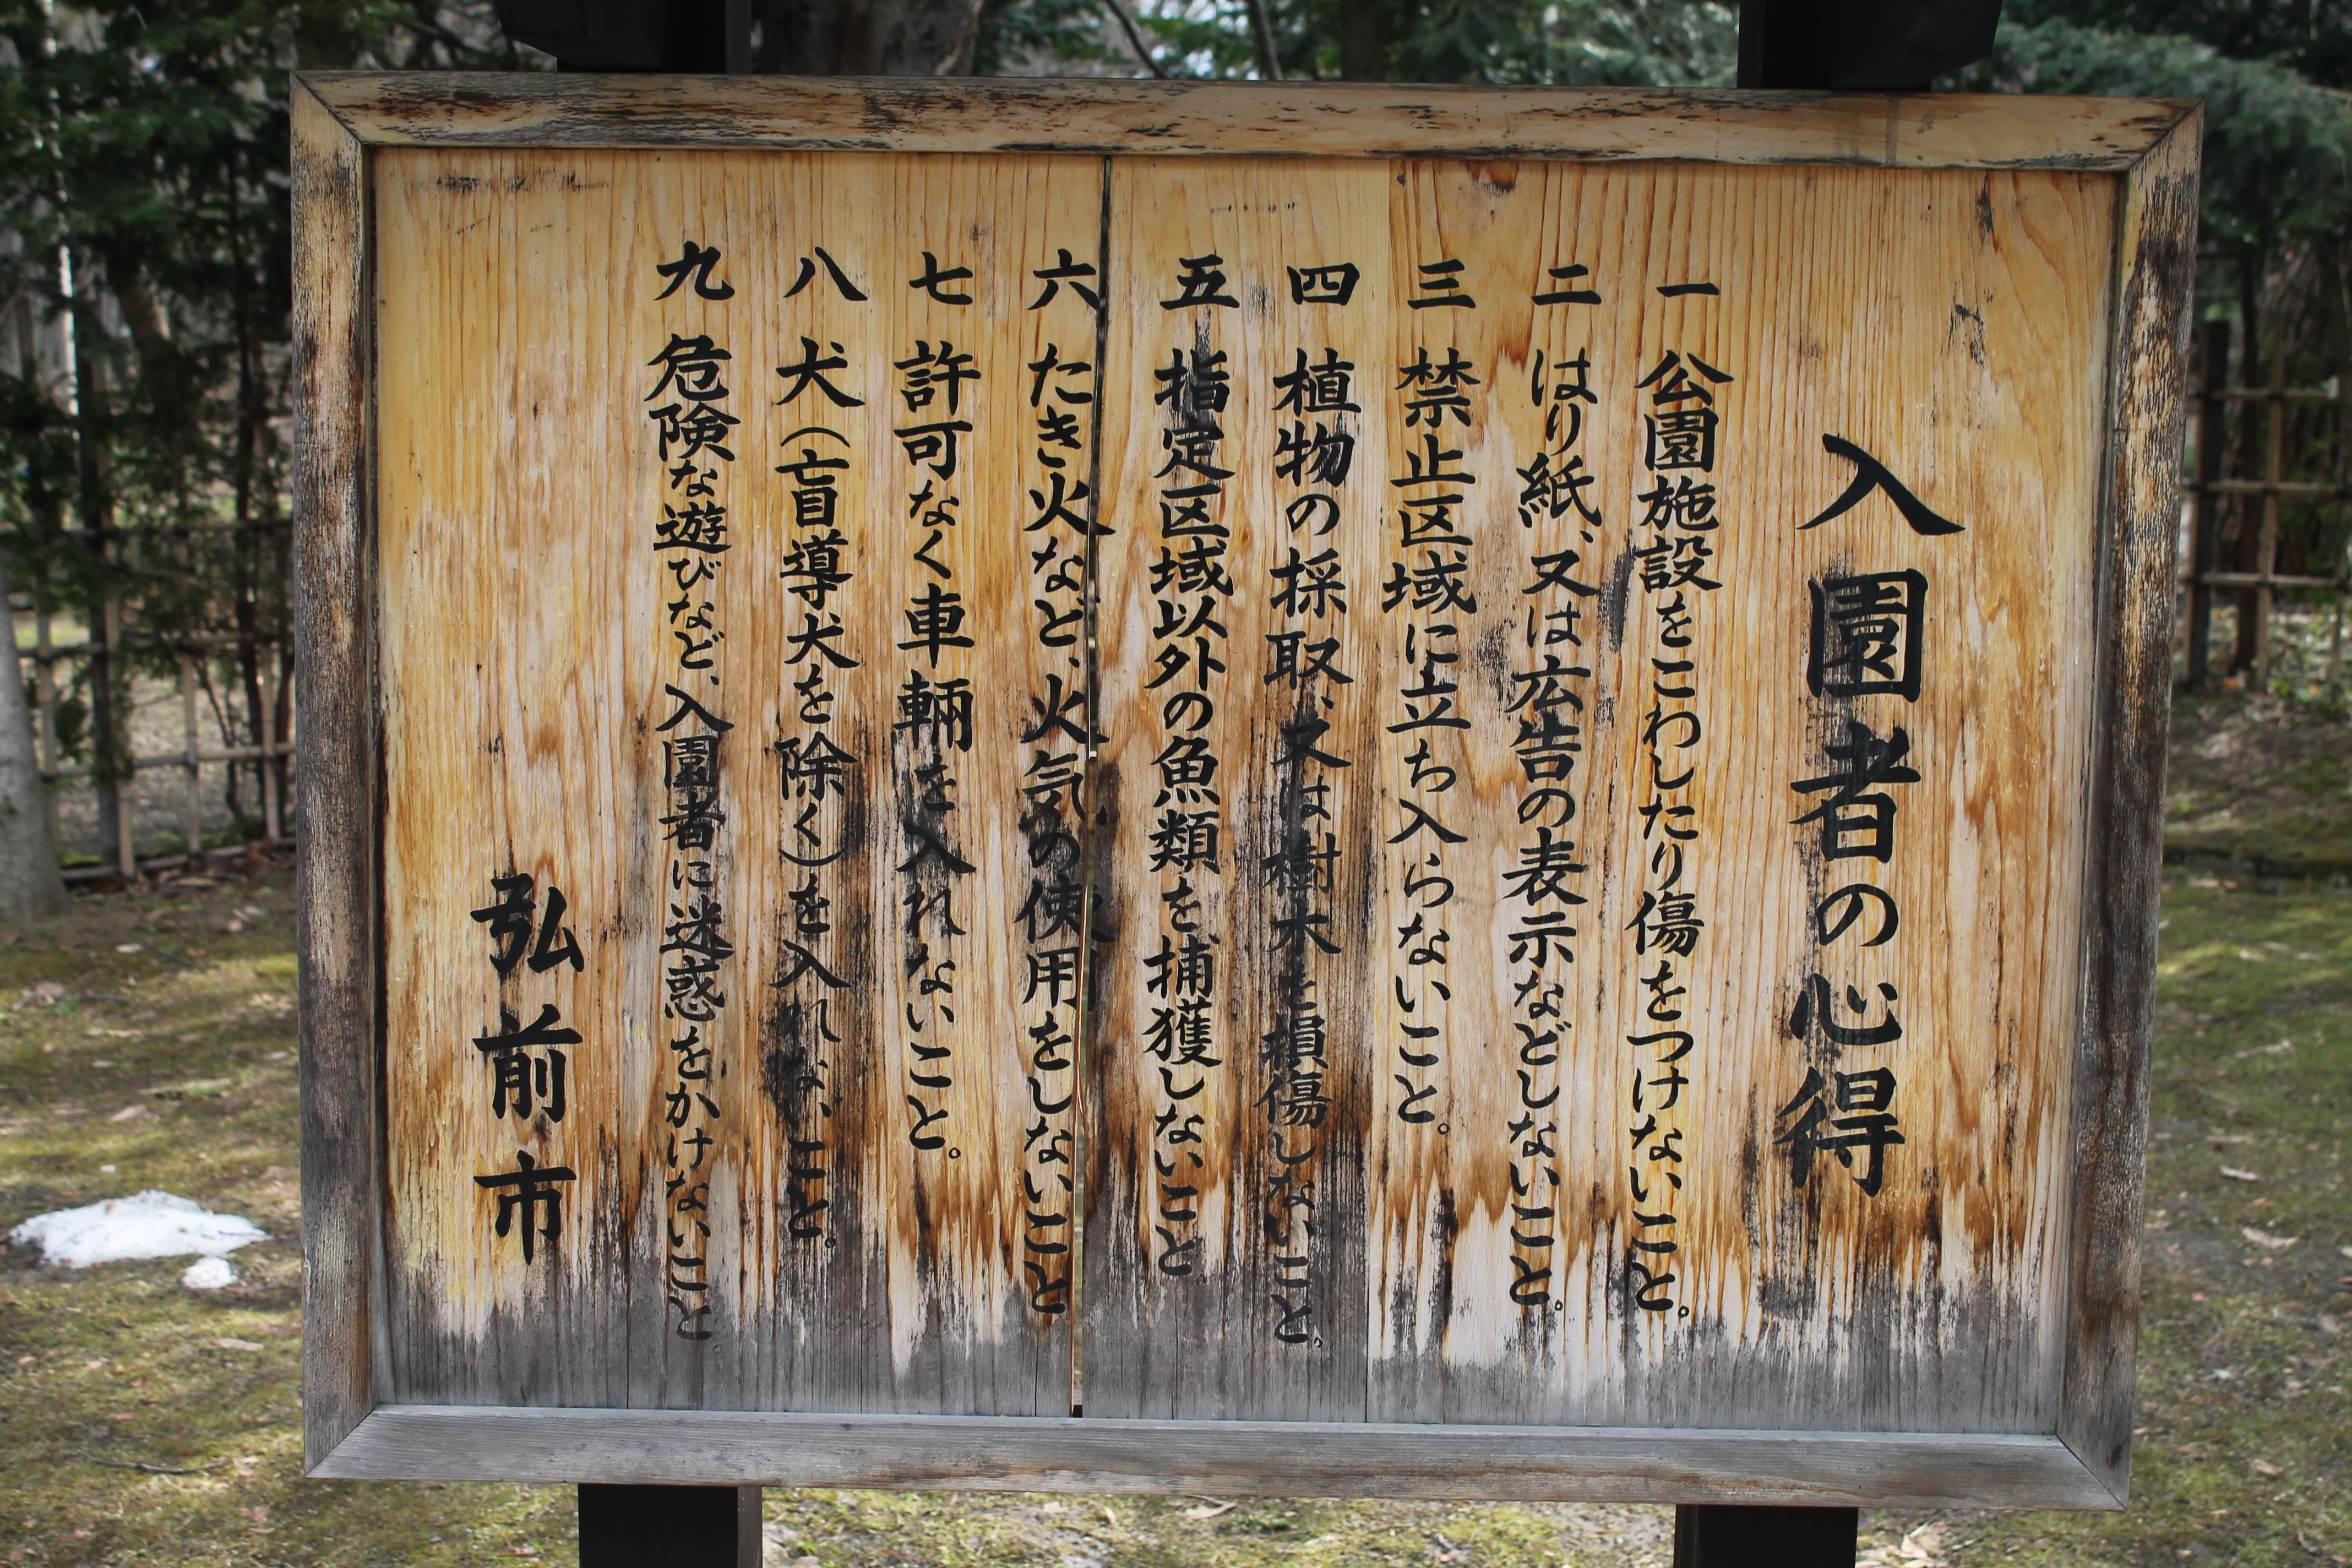 入園者の心得
一 公園施設をこわしたり傷をつけないこと。
二 はり紙、又は広告の表示などしないこと。
三 禁止区域に立ち入らないこと。
四 植物の採取、又は樹木を損傷しないこと。
五 指定区域以外の魚類を捕獲しないこと。
六 たき火など、火気の使用をしないこと
七 許可なく車輛を入れないこと。
八 犬(盲導犬を除く)を入れないこと。
九 危険な遊びなど、入園者に迷惑をかけないこと
弘前市